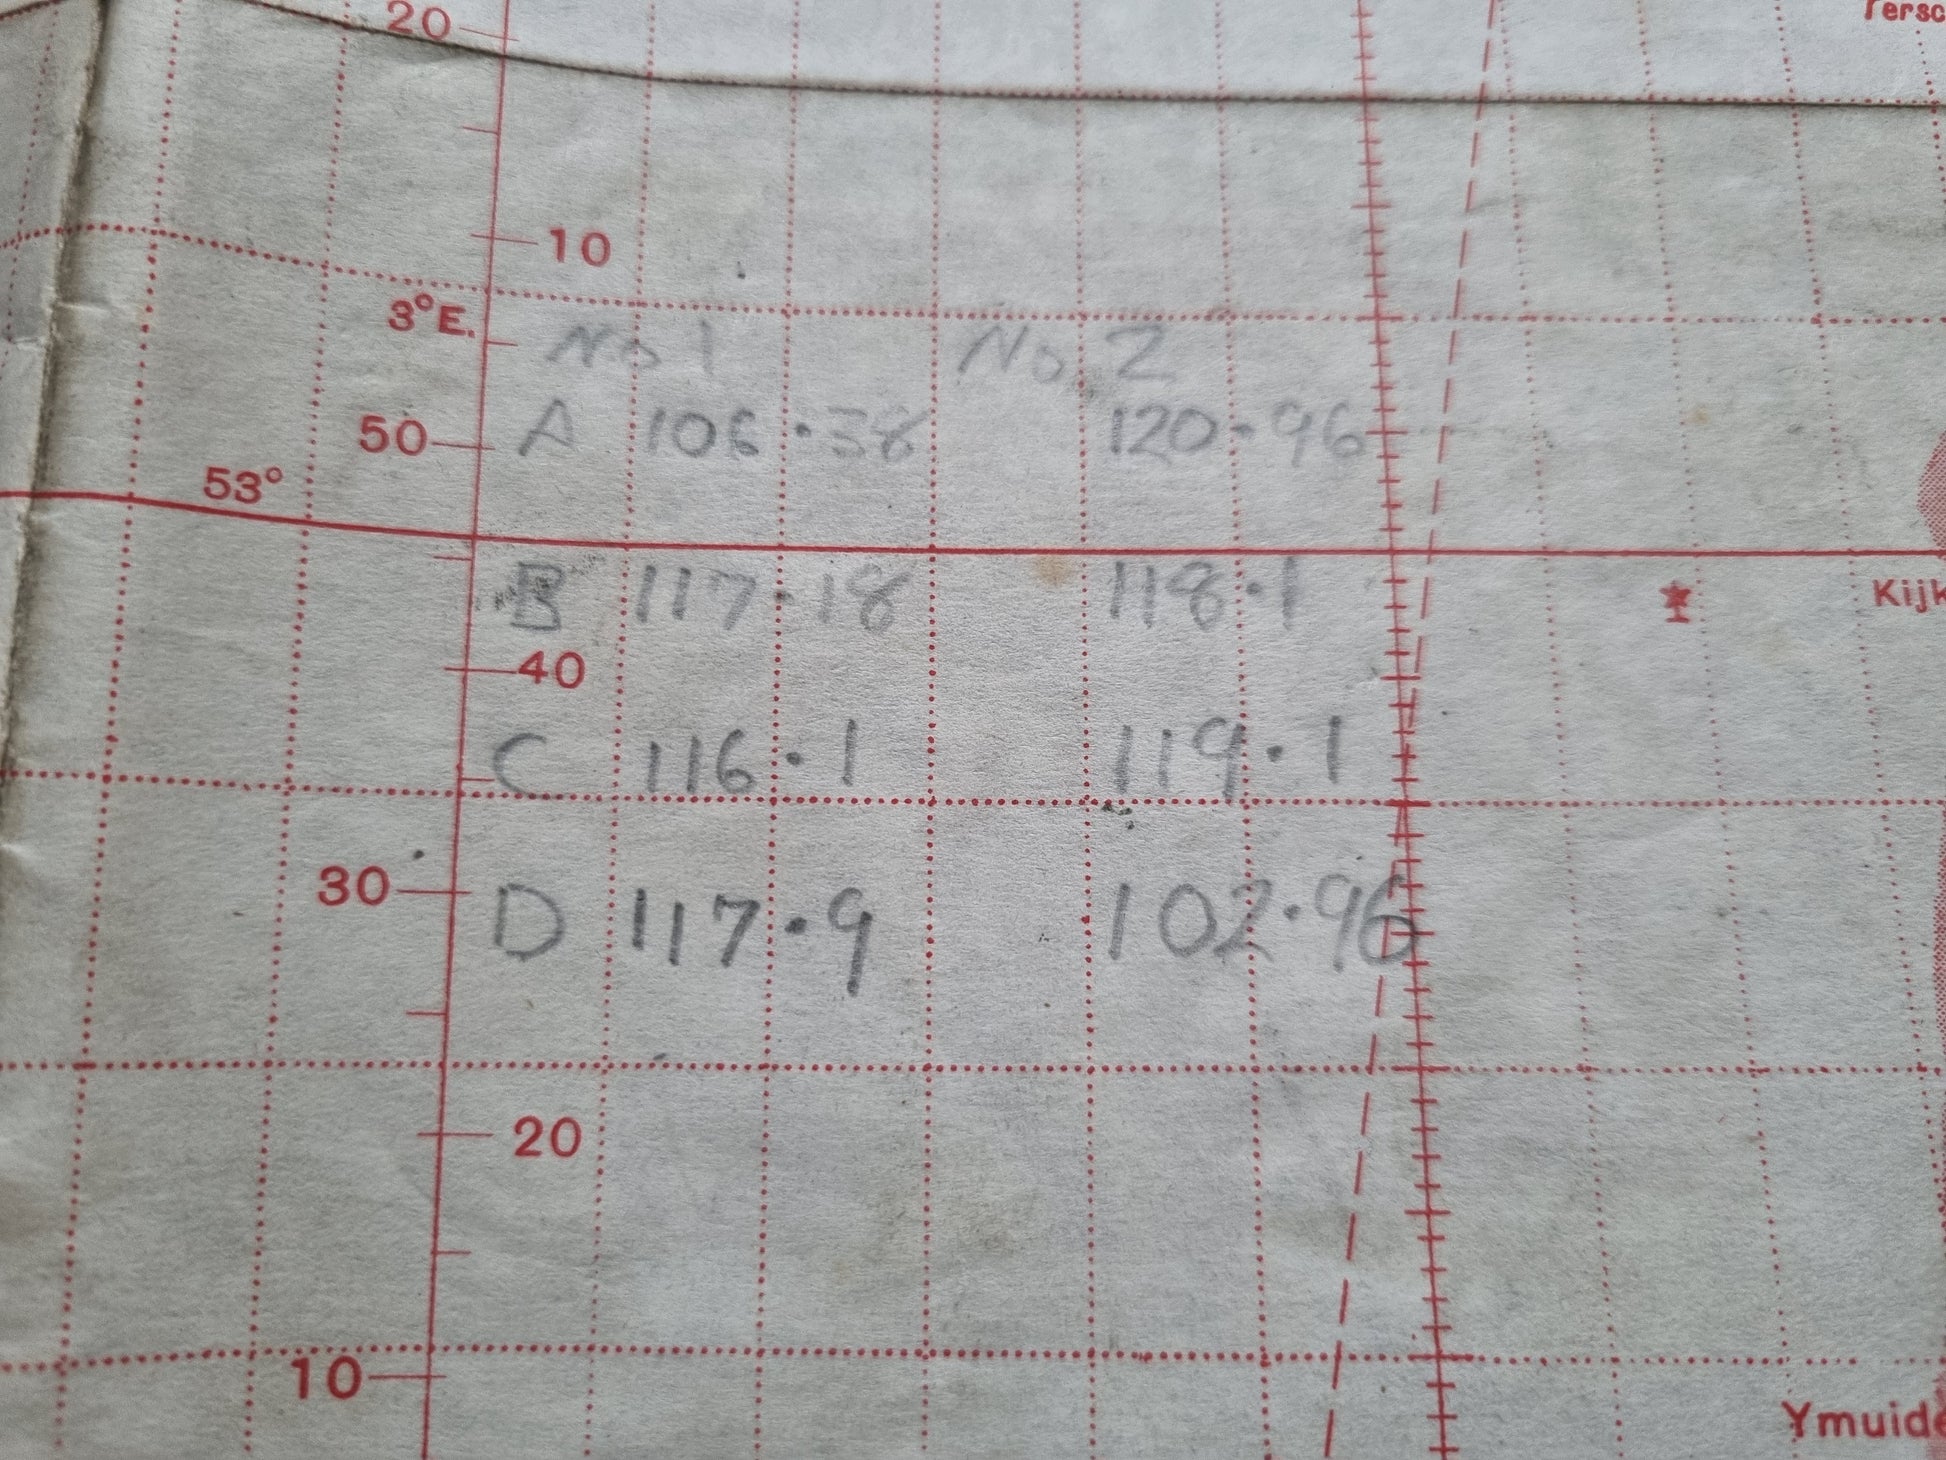 20
10
3°E.
No 1 No 2
A 106.38 120.96
50
53°
B 117.18 118.1
Kijk
40
C 116.1 119.1
30
D 117.9 102.96
20
10
Ymuide